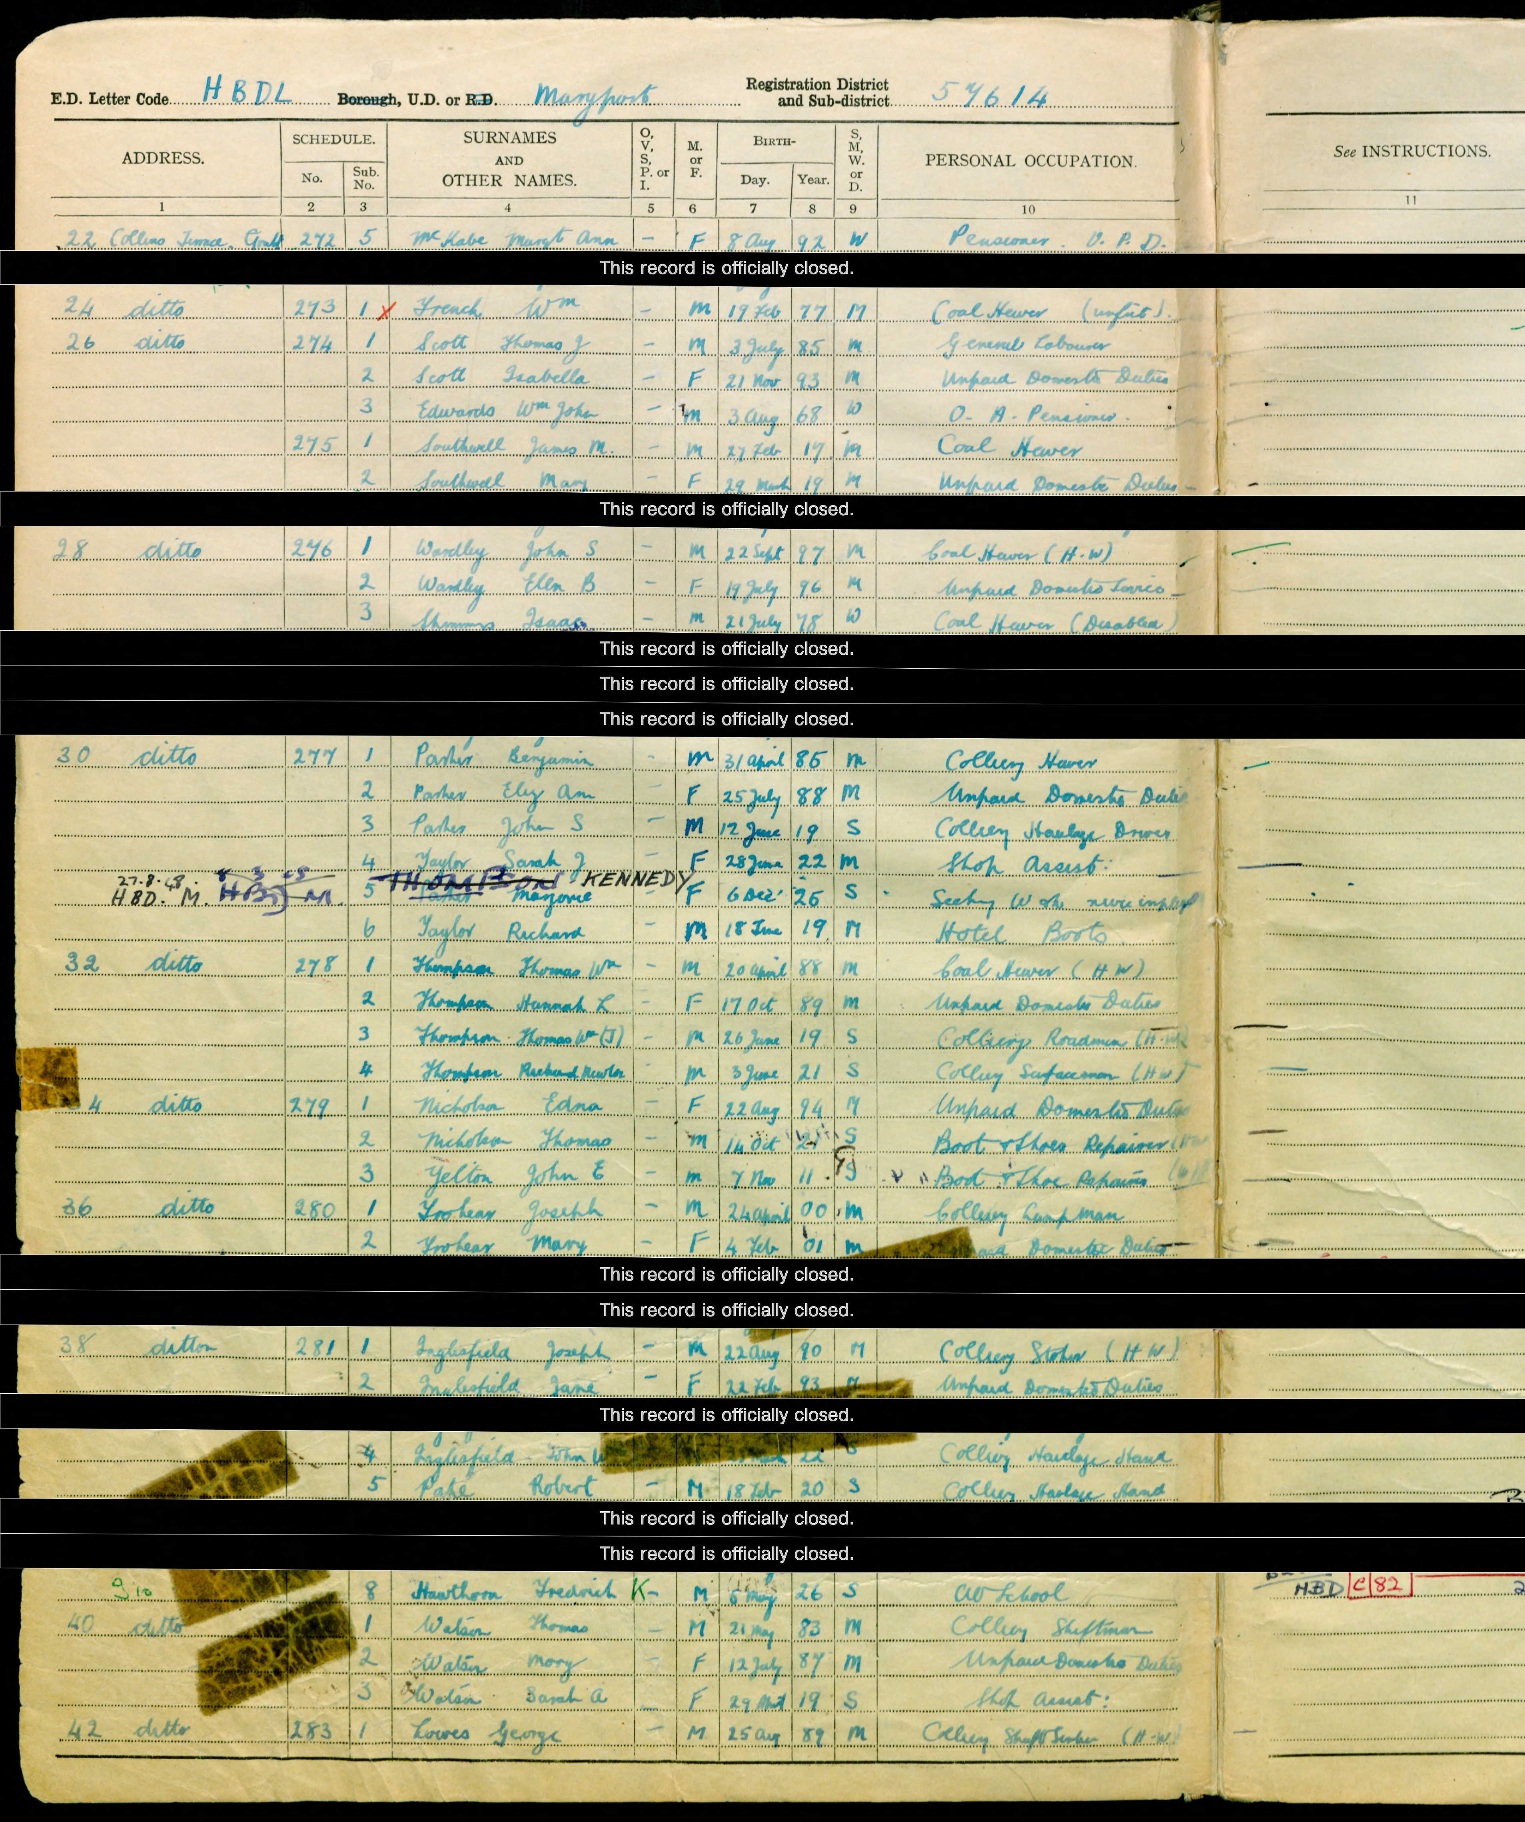 E.D. Letter Code HBDL Borough, U.D. or R.D. Maryport Registration District and Sub-district 576 14
ADDRESS. SCHEDULE. No. Sub. No. SURNAMES AND OTHER NAMES. O, V, S, P. or I. M. or F. BIRTH- Day. Year. S, M, W. or D. PERSONAL OCCUPATION. See INSTRUCTIONS.
1 2 3 4 5 6 7 8 9 10 11
22 Collins Terrace, 272 5 McKabe Margt Ann - F 8 Aug 92 W Pensioner. P. D.
This record is officially closed.
24 ditto 273 1 x French Wm - M 19 Feb 77 M Coal Hewer (unfit).
26 ditto 274 1 Scott Thomas J - M 3 July 85 M General Labourer
2 Scott Isabella - F 21 Nov 93 M Unpaid Domestic Duties
3 Edwards Wm John - M 3 Aug 68 W O. A. Pensioner.
275 1 Southwell James M. - M 27 Feb 17 M Coal Hewer
2 Southwell Mary F 29 March 19 M Unpaid Domestic Duties
This record is officially closed.
28 ditto 276 1 Wardley John S - M 22 Sept 97 M Coal Hewer (H.W)
2 Wardley Ellen B - F 19 July 96 M Unpaid Domestic
3 Isaac - M 21 July 78 W Coal Hewer (Disabled)
This record is officially closed.
This record is officially closed.
This record is officially closed.
30 ditto 277 1 Parker Benjamin - M 31 April 85 M Colliery Hewer
2 Parker Eliz Ann - F 25 July 88 M Unpaid Domestic Duties
3 Parker John S - M 12 June 19 S Colliery Haulage Driver
4 Taylor Sarah J - F 28 June 22 M Shop Assist:
27.8.48 HBD. M. HBD M THOMPSON KENNEDY
5 Parker Marjorie F 6 Dec 25 S Seeking Work never
6 Taylor Richard M 18 June 19 M Hotel Boots
32 ditto 278 1 Thompson Thomas Wm - M 20 April 88 M Coal Hewer (H W)
2 Thompson Hannah L - F 17 Oct 89 M Unpaid Domestic Duties
3 Thompson Thomas Wm (J) - M 26 June 19 S Colliery Roadman
4 Thompson Richard Newton - M 3 June 21 S Colliery Surfaceman (H W)
34 ditto 279 1 Nicholson Edna - F 22 Aug 94 M Unpaid Domestic Duties
2 Nicholson Thomas - M 14 Oct S Boot & Shoes Repairer
3 Yelton John E - M 7 Nov 11 S Boot & Shoe Repairer
36 ditto 280 1 Trohear Joseph - M 24 April 00 M Colliery Lampman
2 Trohear Mary - F 4 Feb 01 M Domestic Duties
This record is officially closed.
This record is officially closed.
38 ditto 281 1 Inglesfield Joseph - M 22 Aug 90 M Colliery Stoker (H W)
2 Inglesfield Jane - F 22 Feb 93 M Unpaid Domestic Duties
This record is officially closed.
4 Inglesfield John W S Colliery Haulage Hand
5 Pake Robert - M 18 Feb 20 S Colliery Haulage Hand
This record is officially closed.
This record is officially closed.
8 Hawthorn Fredrick K - M 26 S At School HBD C 82
40 ditto 1 Watson Thomas - M 21 May 83 M Colliery Shiftman
2 Watson Mary F 12 July 87 M Unpaid Domestic Duties
3 Watson Sarah A F 19 S Shop Assist:
42 ditto 283 1 Lowes George - M 25 Aug 89 M Colliery Shaft Sinker (H.W.)